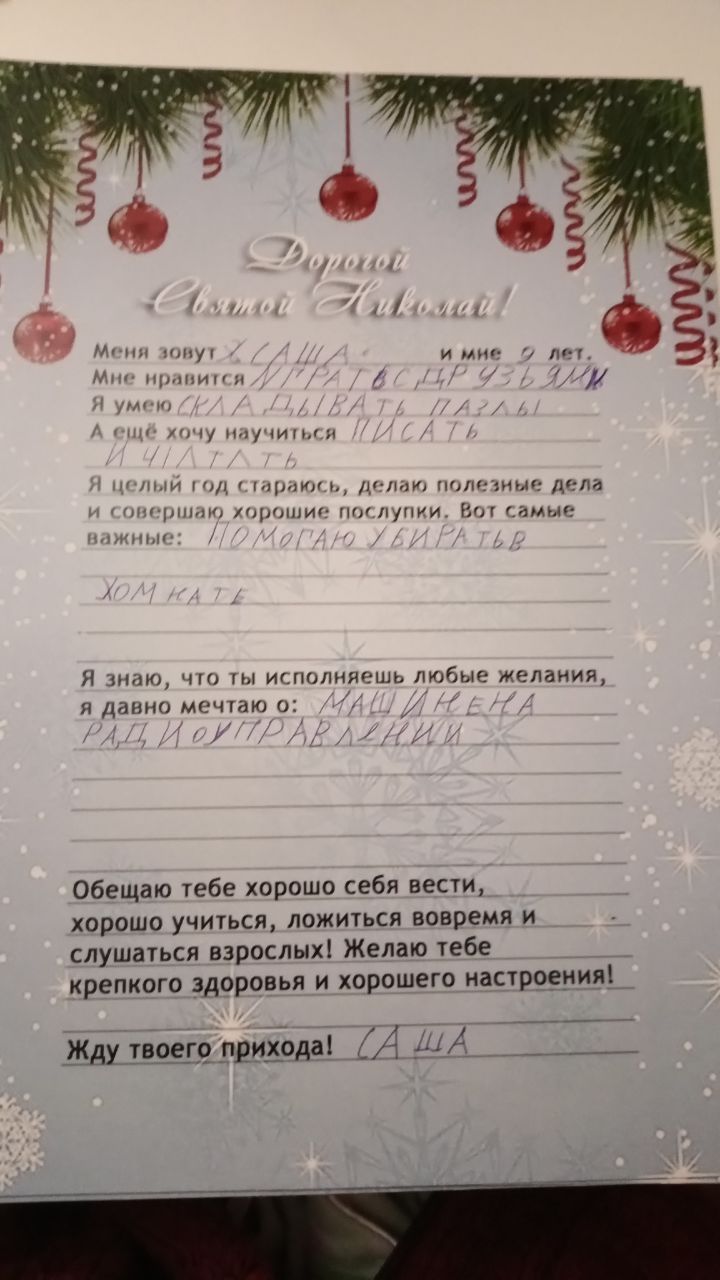 Дорогой
Святой Николай!
Меня зовут САША и мне 9 лет.
Мне нравится ИГРАТЬ С ДРУЗЬЯМИ
Я умею СКЛАДЫВАТЬ ПАЗЛЫ
А ещё хочу научиться ПИСАТЬ
И ЧИТАТЬ
Я целый год стараюсь, делаю полезные дела
и совершаю хорошие послупки. Вот самые
важные: ПОМОГАЮ УБИРАТЬ В
ХОМНАТЕ
Я знаю, что ты исполняешь любые желания,
я давно мечтаю о: МАШИНЕ НА
РАДИОУПРАВЛЕНИИ
Обещаю тебе хорошо себя вести,
хорошо учиться, ложиться вовремя и
слушаться взрослых! Желаю тебе
крепкого здоровья и хорошего настроения!
Жду твоего прихода! САША